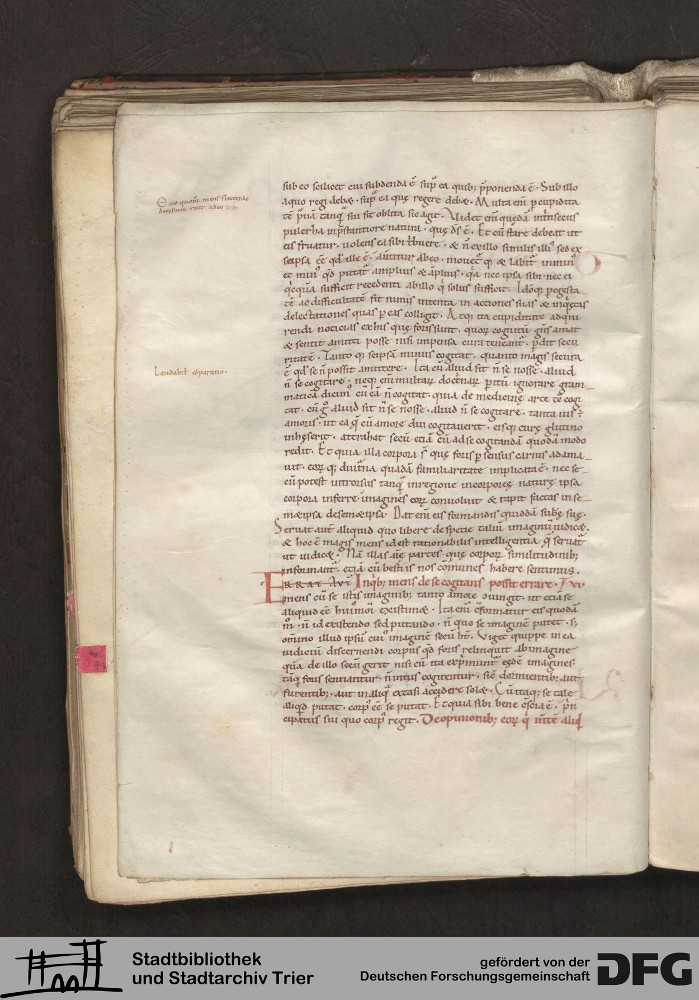 sub eo scilicet cui subdenda ē. sup̄ ea quib; p̄ponenda ē. Sub illo
a quo regi debet. sup̄ ea quę regere debet. Multa em̄ p cupidita
tē prauā tanq̄ sui sit oblita sic agit. Videt em̄ quędā intrinsecus
pulchra in p̄stantiore natura. que dš ē. Et cū stare debeat ut
eis fruatur. uolens ea sibi tribuere. & n̄ ex illo similis illi sed ex
seipsa eē qd̄ ille ē. auertitur ab eo. mouetq; & labit in min
et min qd̄ putat amplius & amplius. quia nec ipsa sibi nec ei
quicquā sufficit recedenti ab illo qui solus sufficit. Ideoq; p egesta
tē ac difficultatē fit nimis intenta in actiones suas & inquietas
delectationes quas p eas colligit. Atq; ita cupiditate adqui
rendi noticias ex his quę foris sunt. quorū cognitū genus amat
& sentit amitti posse nisi inpensa cura teneatur. perdit secu
ritatē. Tanto q; seipsam minus cogitat. quanto magis secura
ē qd̄ se n̄ possit amittere. Ita cū aliud sit n̄ se nosse. aliud
n̄ se cogitare. neq; em̄ multarū doctrinarū peritū ignorare gram
maticā dicim cū eā n̄ cogitat. quia de medicinę arte tē cogi
tat. cū g aliud sit n̄ se nosse. aliud n̄ se cogitare. tanta uis ē
amoris. ut ea q cū amore diu cogitauerit. eisq; curę glutino
inhęserit. attrahat secū etiā cū ad se cogitandā quodā modo
redit. Et quia illa corpora s̄ quę foris p sensus carnis adama
uit. eorūq; diuturna quadā familiaritate implicata ē. nec se
cū potest introrsus tanq̄ in regione incorporeę naturę ipsa
corpora inferre. imagines eorū conuoluit & rapit factas in se
metipsa de semetipsa. Dat em̄ eis formandis quiddā subst suę.
Seruat aut aliquid quo libere de specie taliū imaginū iudicet.
& hoc ē magis mens id est rationabilis intelligentia q seruat
ut iudicet. Nā illas aīę partes quę corporū similitudinib;
informant. etiā cū bestiis nos comunes habere sentimus.
ERRAT AVT In qb; mens de se cogitans possit errare. Xvi
mens cū se istis imaginib; tanto amore coniungit. ut etiā se
aliquid eē huimoi existimet. Ita em̄ cformatur eis quodā
m̊. n̄ id existendo sed putando. n̄ quo se imaginē putet. s;
omnino illud ipsū cui imaginē secū hēt. Viget quippe in ea
iudiciū discernendi corpus qd̄ foris relinquit ab imagine
quā de illo secū gerit. nisi cū ita exprimunt eędē imagines
tāq̄ foris sentiantur. n̄ intus cogitentur. sic dormientib; aut
furentib; aut in aliq extasi accidere solet. Cū itaq; se tale
aliqd putat. corp eē se putat. Et quia sibi bene cscia ē. prin
cipatus sui quo corp regit. De opinionib; eorū q m̄te aliq
Laudabil cparatio.
Stadtbibliothek
und Stadtarchiv Trier
gefördert von der
Deutschen Forschungsgemeinschaft
DFG